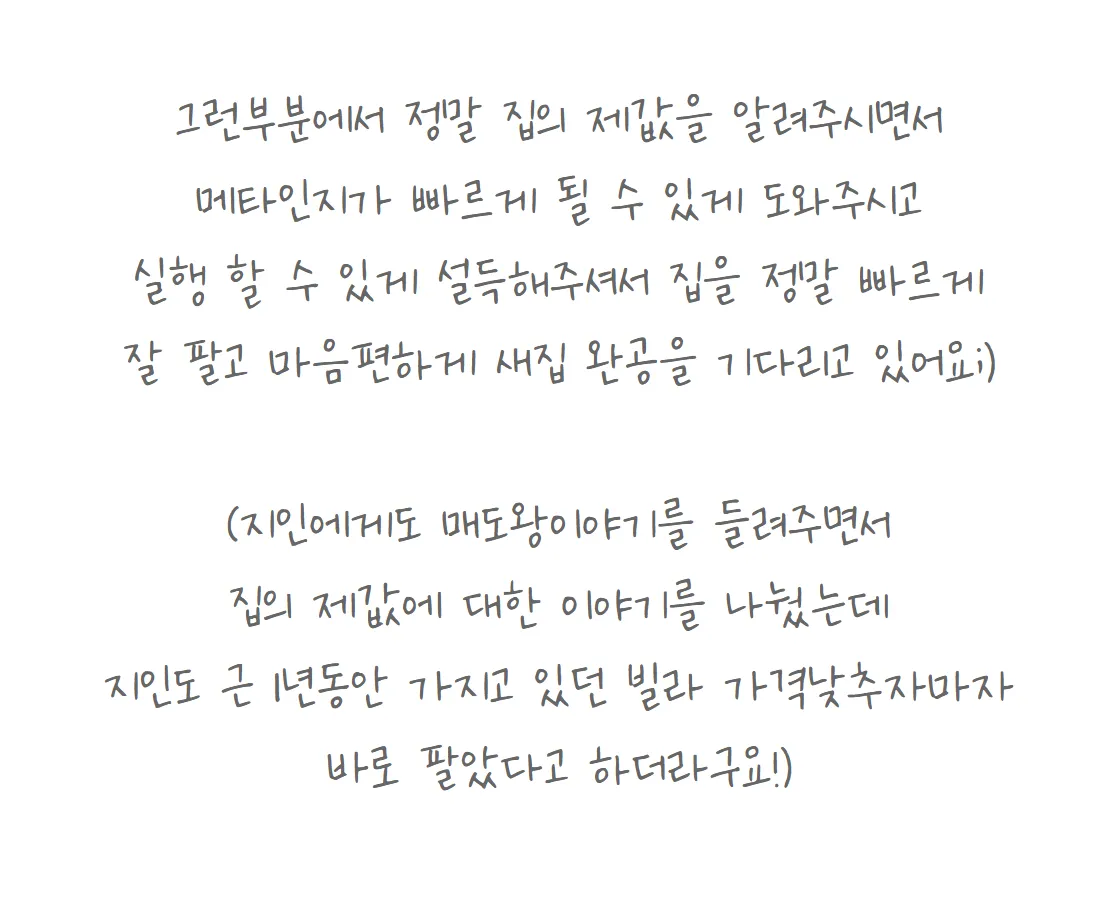 그런부분에서 정말 집의 제값을 알려주시면서
메타인지가 빠르게 될 수 있게 도와주시고
실행 할 수 있게 설득해주셔서 집을 정말 빠르게
잘 팔고 마음편하게 새집 완공을 기다리고 있어요;)
(지인에게도 매도왕이야기를 들려주면서
집의 제값에 대한 이야기를 나눴는데
지인도 근 1년동안 가지고 있던 빌라 가격낮추자마자
바로 팔았다고 하더라구요!)